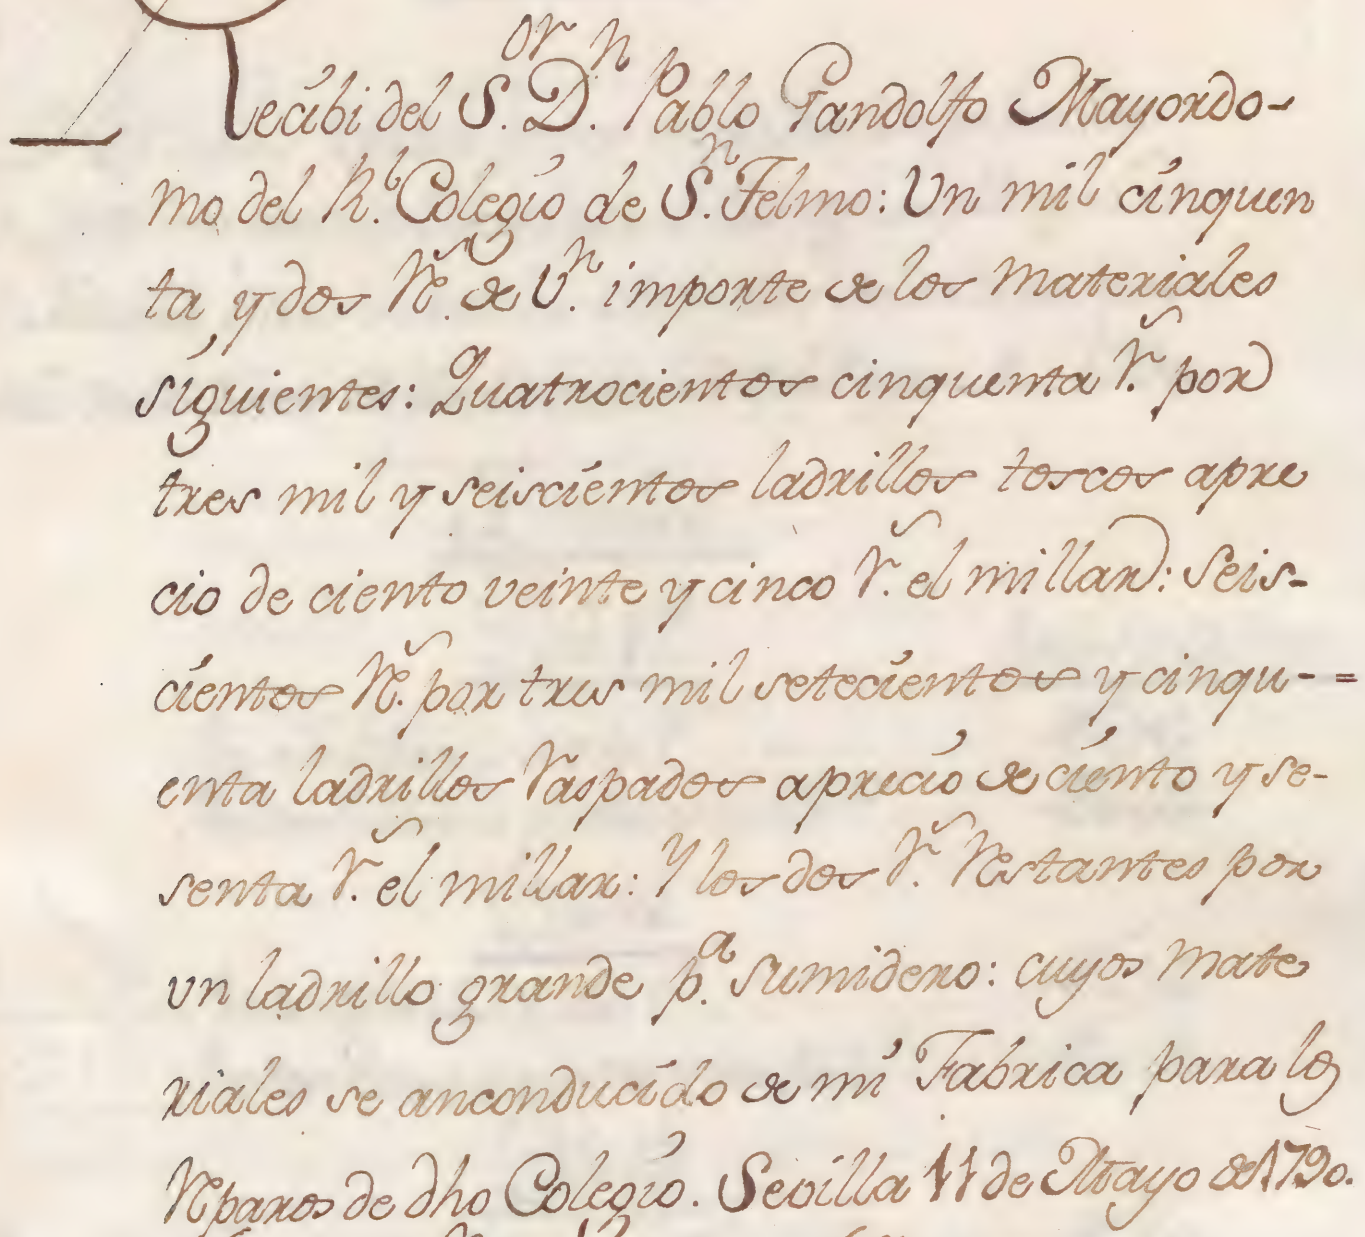 Recibi del S.or D.n Pablo Gandolfo Mayordo-
mo del R.l Colegio de S.n Telmo: Un mil cinquen
ta y dos r.s de v.n importe de los materiales
siguientes: Quatrocientos cinquenta r.s por
tres mil y seiscientos ladrillos toscos apre
cio de ciento veinte y cinco r.s el millar: Seis-
cientos r.s por tres mil setecientos y cinqu-=
enta ladrillos raspados aprecio de ciento y se-
senta r.s el millar: Y los dos r.s restantes por
un ladrillo grande p.a sumidero: cuyos mate
riales se anconducido de mi Fabrica para los
reparos de dho Colegio. Sevilla 11 de Mayo de 1790.